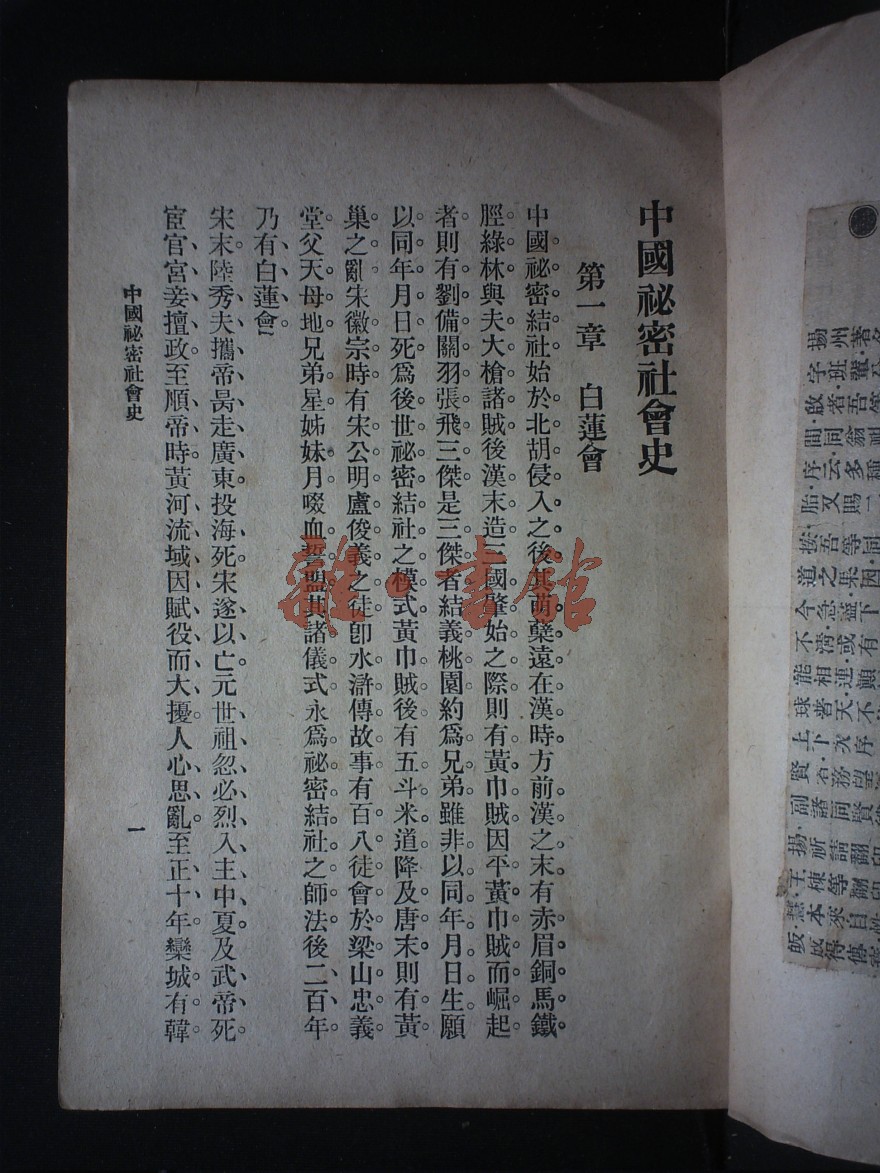 中國祕密社會史
第一章 白蓮會
中國祕密結社始於北胡侵入之後其萌蘗遠在漢時方前漢之末有赤眉銅馬鐵
脛綠林與夫大槍諸賊後漢末造三國肇始之際則有黃巾賊因平黃巾賊而崛起
者則有劉備關羽張飛三傑是三傑者結義桃園約爲兄弟雖非以同年月日生願
以同年月日死爲後世祕密結社之模式黃巾賊後有五斗米道降及唐末則有黃
巢之亂宋徽宗時有宋公明盧俊義之徒卽水滸傳故事有百八徒會於梁山忠義
堂父天母地兄弟星姊妹月啜血誓盟其諸儀式永爲祕密結社之師法後二百年
乃有白蓮會
宋末陸秀夫攜帝昺走廣東投海死宋遂以亡元世祖忽必烈入主中夏及武帝死
宦官宮妾擅政至順帝時黃河流域因賦役而大擾人心思亂至正十年欒城有韓
中國祕密社會史
一
雜·書館